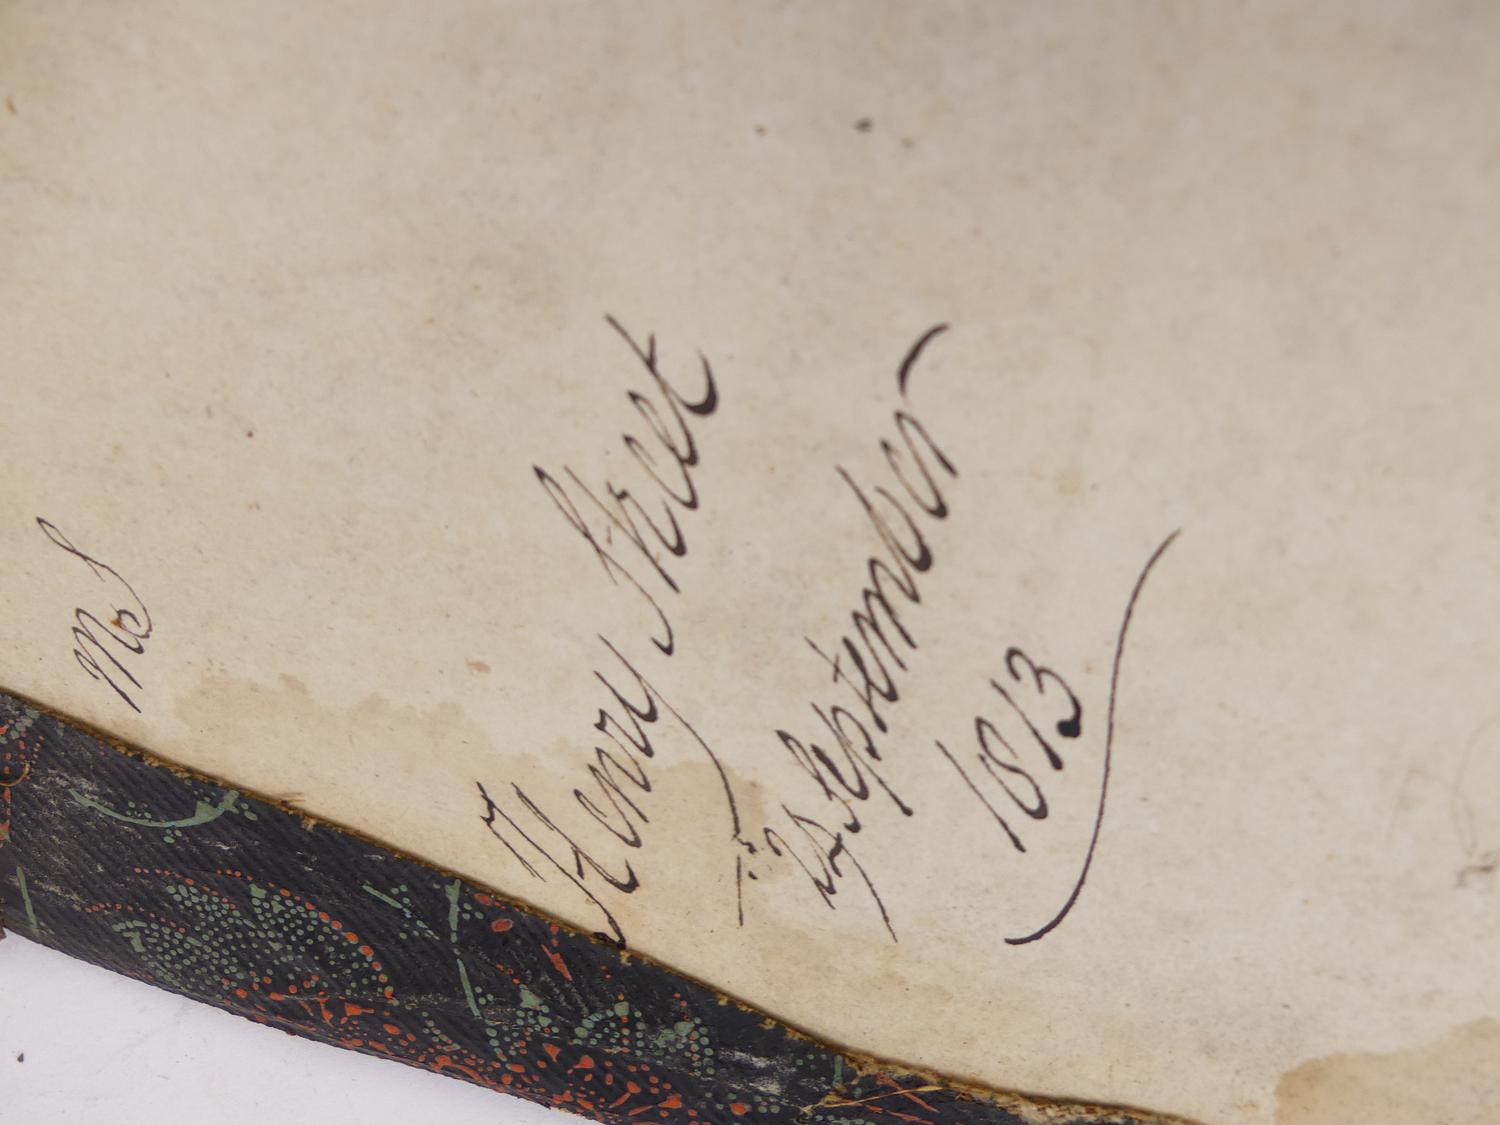 Henry Street
September
1813